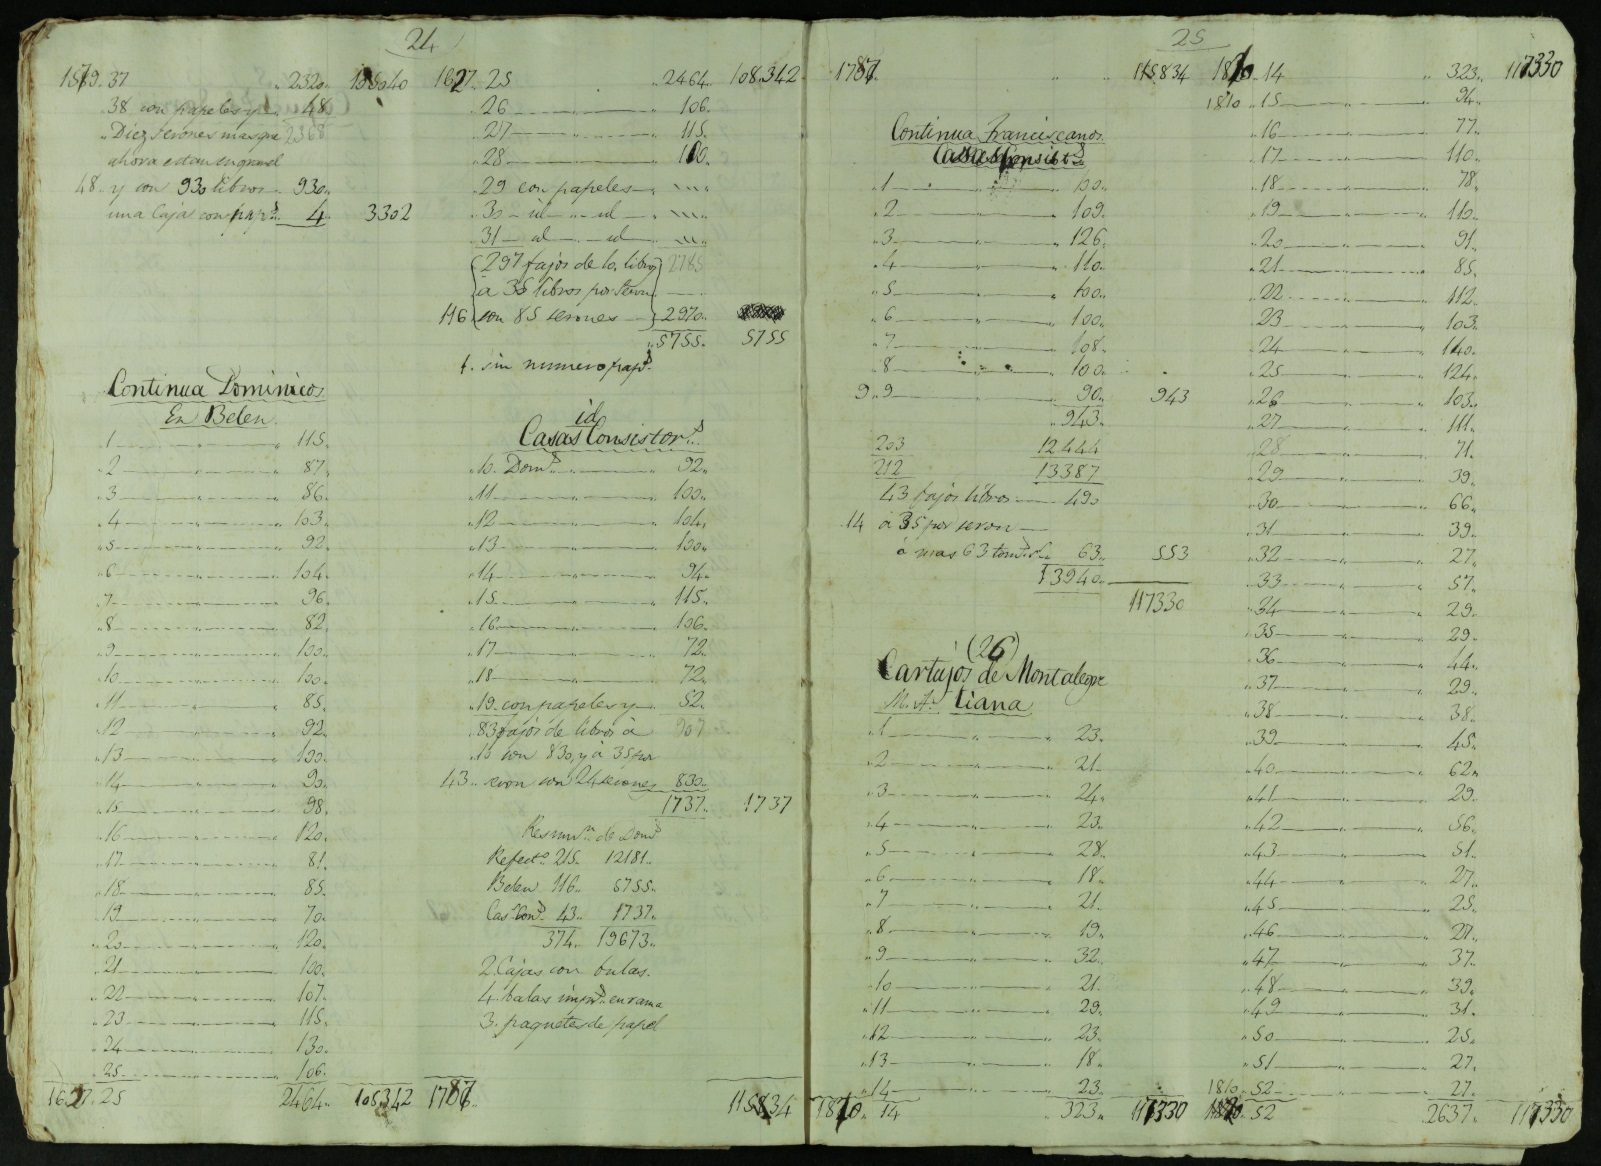 24
1579. 37 „ 2320. 105040
„38 con papeles y „ 48.
„Diez serones mas que 2368
ahora estan en granel
48. y con 930 libros „ 930„
una Caja con pap.s „ 4. 3302
Continua Dominicos
En Belen.
„1 „ 115.
„2 „ 87.
„3 „ 86.
„4 „ 103.
„5 „ 92.
„6 „ 104.
„7 „ 96.
„8 „ 82.
„9 „ 100.
„10 „ 100.
„11 „ 85.
„12 „ 92.
„13 „ 100.
„14 „ 90.
„15 „ 98.
„16 „ 120.
„17 „ 81.
„18 „ 85.
„19 „ 70.
„20 „ 120.
„21 „ 100.
„22 „ 107.
„23 „ 115.
„24 „ 130.
„25 „ 106.
1627. 25 2464„ 108342
1627. 25 „ 2464. 108.342
„26 „ 106.
„27 „ 115.
„28 „ 100.
„29 con papeles „
„30 id „ id „
„31 id „ id „
297 fajos de 10 libros 2785
a 35 libros por Seron
116 son 85 serones 2970.
„5755. 5755
1. sin numero pap.s
id
Casas Consistor.s
„10. Dom.s „ 92„
„11 „ 100„
„12 „ 104„
„13 „ 100„
„14 „ 94„
„15 „ 115„
„16 „ 106.
„17 „ 72„
„18 „ 72„
„19. con papeles y 52.
„83 fajos de libros á 907
„10 son 830, y á 35 por
43.. seron son 24 serones 830„
1737„ 1737
Resum.n de Dom.s
Refect.o 215. 12181.
Belen 116. 5755.
Cas.s Con.s 43. 1737.
374. 19673.
2. Cajas con bulas.
4. balas impr.s en rama
3. paquetes de papel
1787. 115834
25
1787. „ „ 115834
Continua Franciscanos.
Casas Consist.s
„1 „ 100„
„2 „ 109.
„3 „ 126.
„4 „ 110.
„5 „ 100„
„6 „ 100„
„7 „ 108„
„8 „ 100„
9. 9 „ 90„ 943
„943„
203 12444
212 13387
43 fajos libros 490
14 a 35 por seron
á mas 63 tom.s 63„ 553
13940„
117330
(26)
Cartujos de Montalegre
M. A. Tiana
„1 „ 23.
„2 „ 21.
„3 „ 24.
„4 „ 23.
„5 „ 28.
„6 „ 18.
„7 „ 21.
„8 „ 19.
„9 „ 32.
„10 „ 21.
„11 „ 29.
„12 „ 23.
„13 „ 18.
„14 „ 23.
1810. 14 „ 323„ 117330
1810. 14 „ 323„ 117330
1810 „15 „ 94„
„16 „ 77„
„17 „ 110„
„18 „ 78„
„19 „ 110„
„20 „ 91.
„21 „ 85.
„22 „ 112.
„23 „ 103.
„24 „ 140.
„25 „ 124.
„26 „ 103.
„27 „ 111.
„28 „ 71.
„29 „ 39.
„30 „ 66.
„31 „ 39.
„32 „ 27.
„33 „ 57.
„34 „ 29.
„35 „ 29.
„36 „ 44.
„37 „ 29.
„38 „ 38.
„39 „ 45.
„40 „ 62„
„41 „ 29.
„42 „ 56.
„43 „ 51.
„44 „ 27.
„45 „ 25.
„46 „ 27.
„47 „ 37.
„48 „ 39.
„49 „ 31.
„50 „ 25.
„51 „ 27.
1810. 52 „ 27.
52 2637„ 117330